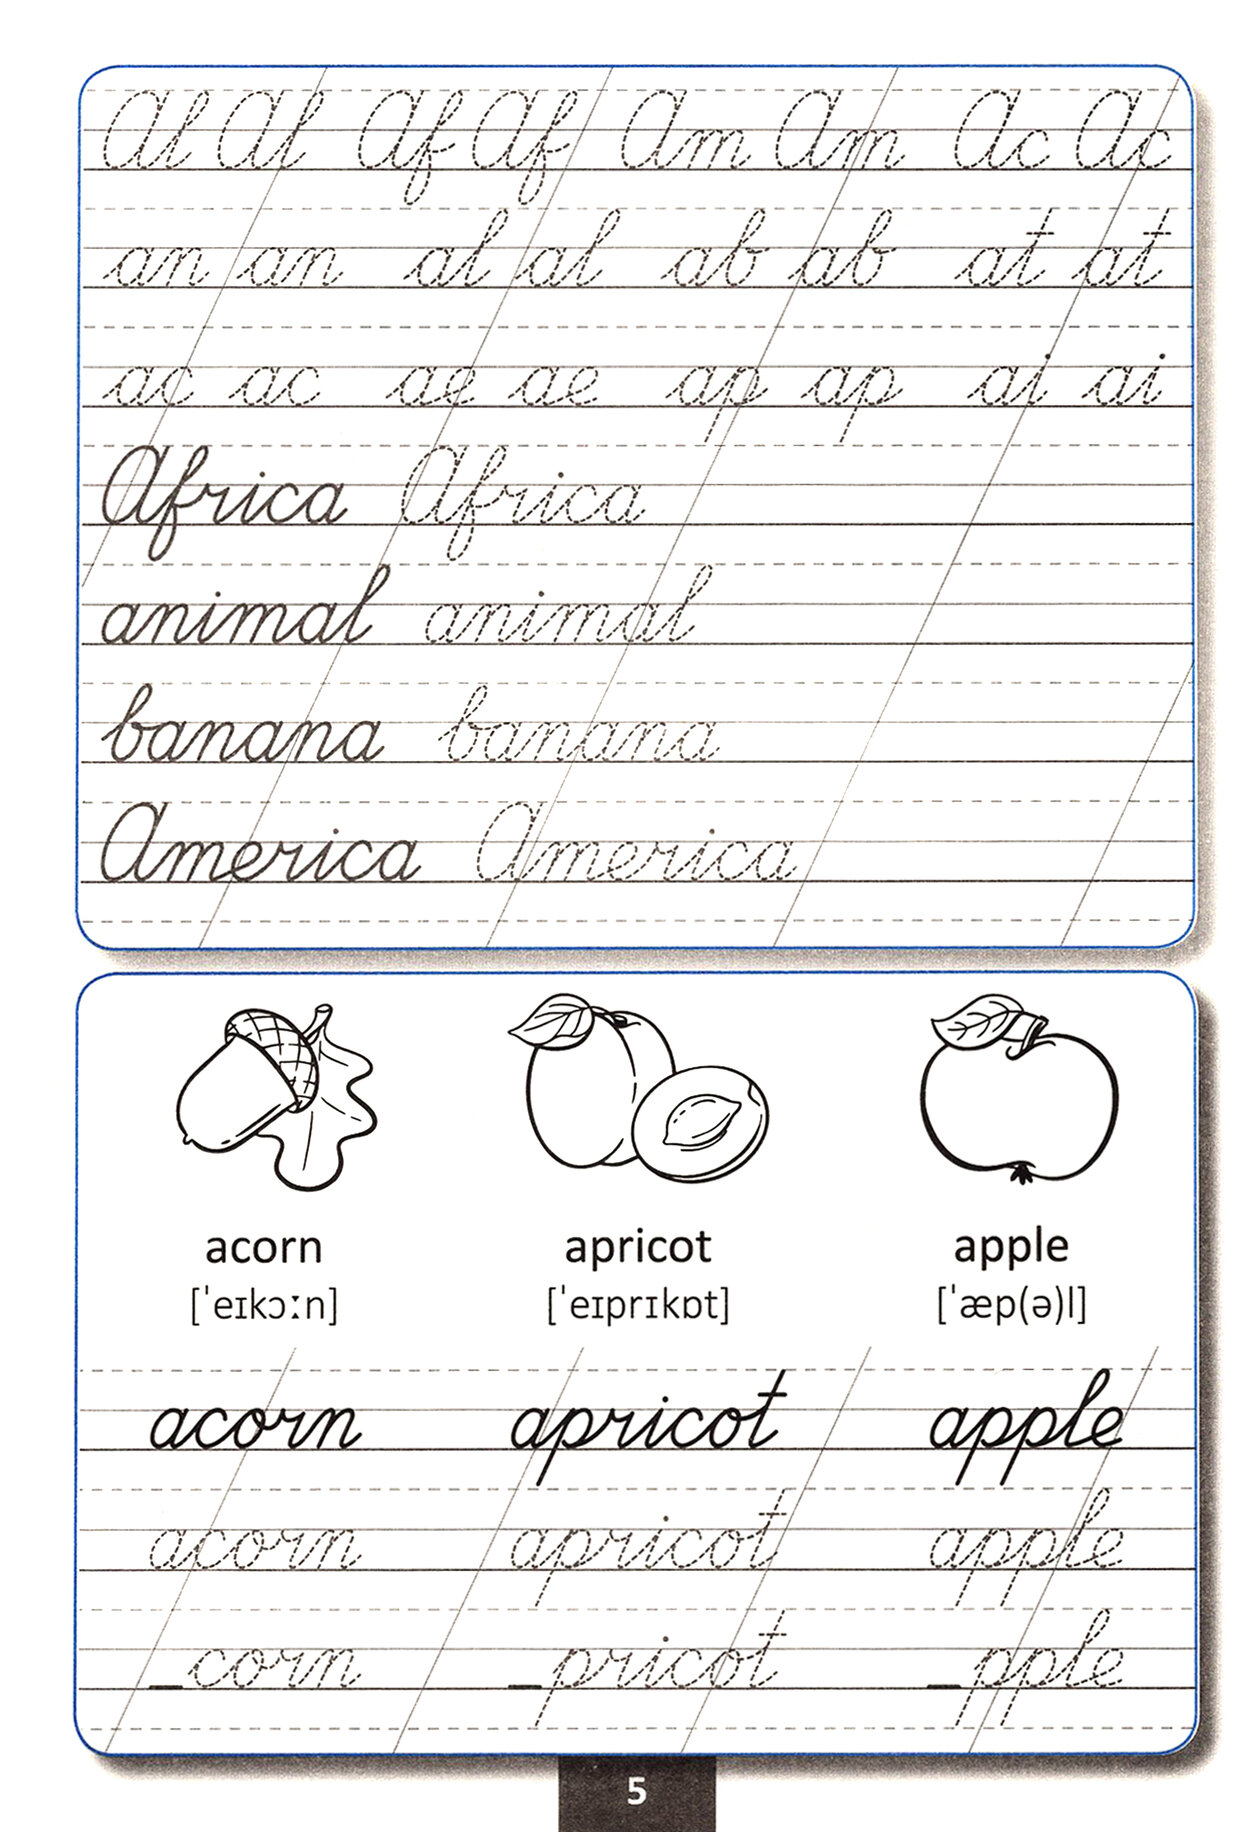 Al Al Af Af Am Am Ac Ac
an an al al ab ab at at
ac ac ae ae ap ap ai ai
Africa Africa
animal animal
banana banana
America America
acorn apricot apple
[ˈeɪkɔːn] [ˈeɪprɪkɒt] [ˈæp(ə)l]
acorn apricot apple
acorn apricot apple
_corn _pricot _pple
5